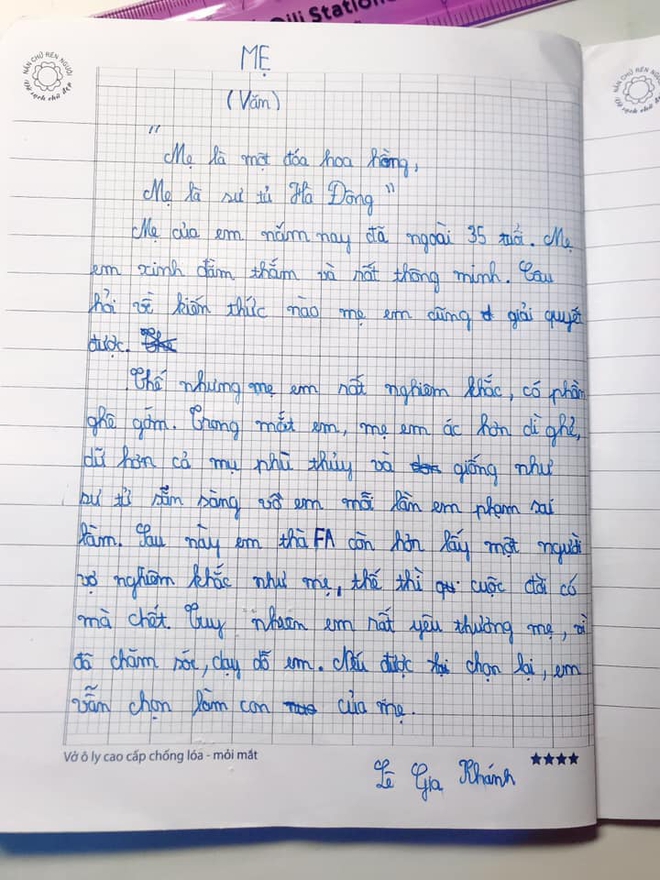 Qili Station
NẮN CHỮ RÈN NGƯỜI
Vở sạch chữ đẹp
MẸ
(Văn)
"
Mẹ là một đóa hoa hồng,
Mẹ là sư tử Hà Đông"
Mẹ của em năm nay đã ngoài 35 tuổi. Mẹ
em xinh đằm thắm và rất thông minh. Câu
hỏi về kiến thức nào mẹ em cũng giải quyết
được.
Thế nhưng mẹ em rất nghiêm khắc, có phần
ghê gớm. Trong mắt em, mẹ em ác hơn dì ghẻ,
dữ hơn cả mụ phù thủy và giống như
sư tử sẵn sàng vồ em mỗi lần em phạm sai
lầm. Sau này em thà FA còn hơn lấy một người
vợ nghiêm khắc như mẹ, thế thì cuộc đời có
mà chết. Tuy nhiên em rất yêu thương mẹ, vì
đã chăm sóc, dạy dỗ em. Nếu được chọn lại, em
vẫn chọn làm con của mẹ.
Vở ô ly cao cấp chống lóa - mỏi mắt
★★★★
Lê Gia Khánh